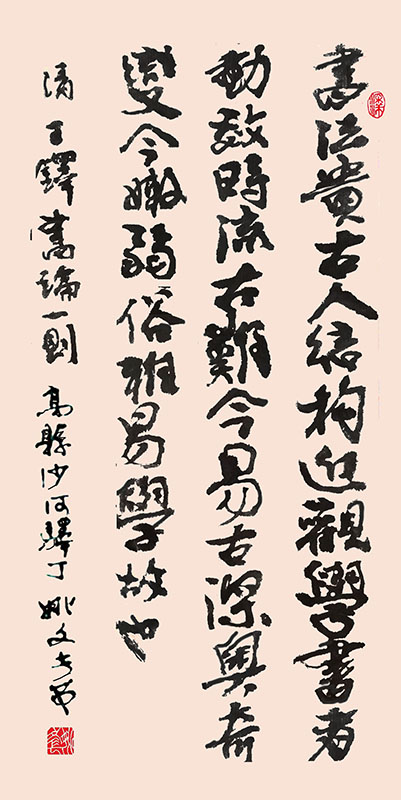 書法貴古人結構近觀學書者
動效時流古難今易古深奧奇
變今嫩弱俗雅易學故也
清王鐸書論一則 高縣沙河驛丁 姚文